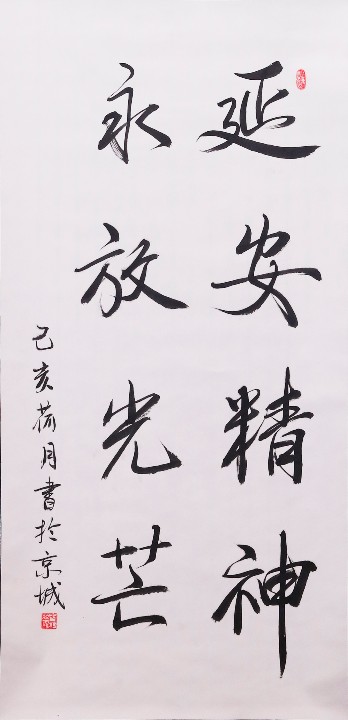 延安精神
永放光芒
己亥荷月書於京城